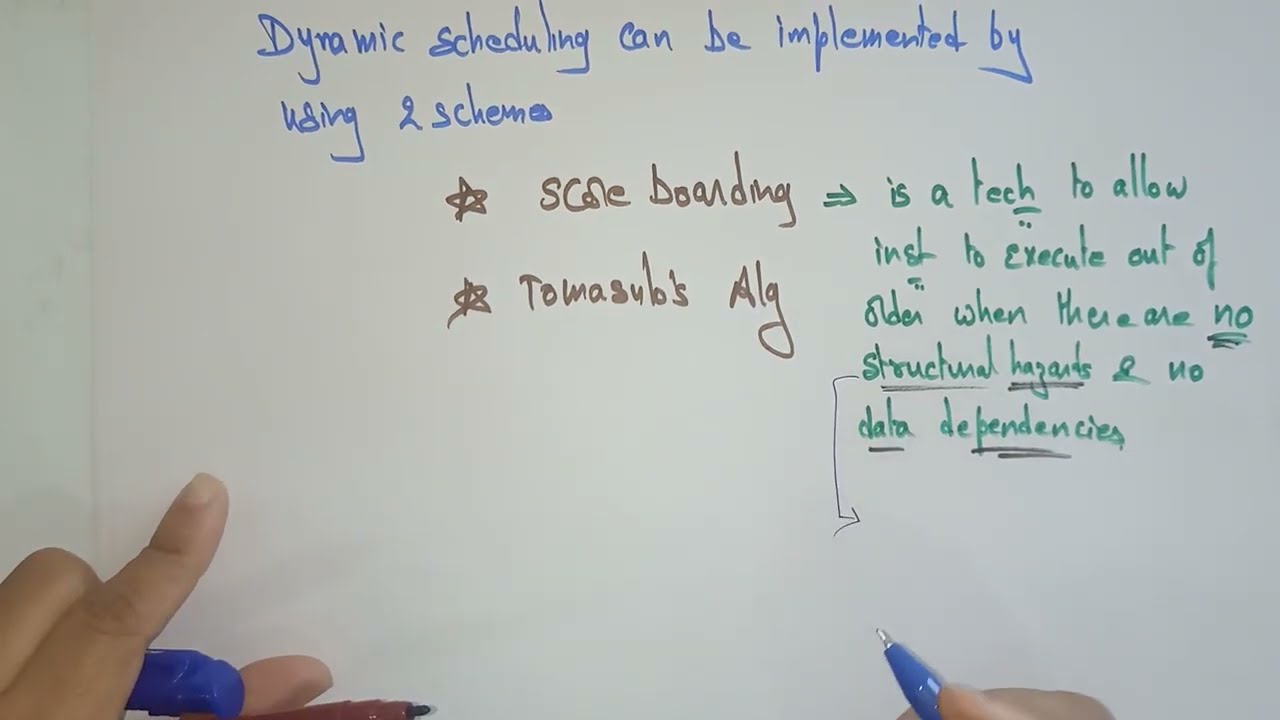 Dynamic scheduling can be implemented by
using 2 schemes
☆ Score boarding ⇒ is a tech to allow
inst to execute out of
☆ Tomasulo's Alg
order when there are no
structural hazards & no
data dependencies